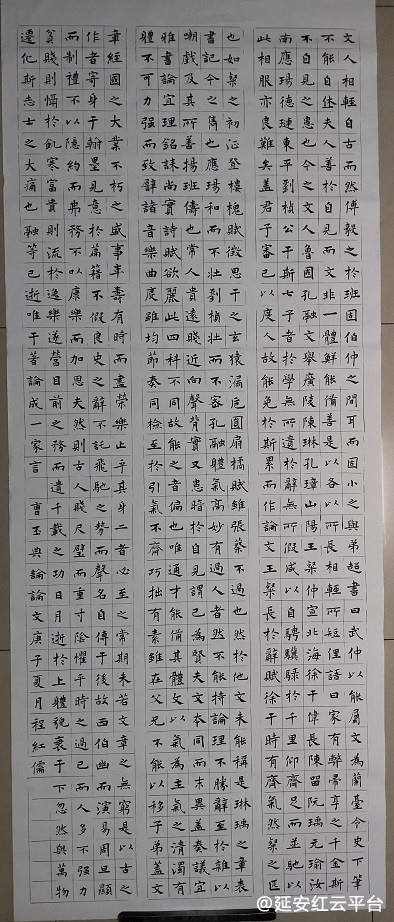 文人相輕自古而然傅毅之於班固伯仲之間耳而固小之與弟超書曰武仲以能屬文為蘭臺令史下筆
不能自休夫人善於自見而文非一體鮮能備善是以各以所長相輕所短俚語曰家有弊帚享之千金斯
不自見之患也今之文人魯國孔融文舉廣陵陳琳孔璋山陽王粲仲宣北海徐干偉長陳留阮瑀元瑜汝
南應瑒德璉東平劉楨公干斯七子者於學無所遺於辭無所假咸以自騁驥騄於千里仰齊足而並馳以
此相服亦良難矣蓋君子審己以度人故能免於斯累而作論文王粲長於辭賦徐干時有齊氣然粲之匹
也如粲之初征登樓槐賦徵思干之玄猿漏卮圓扇橘賦雖張蔡不過也然於他文未能稱是琳瑀之章表
書記今之雋也應瑒和而不壯劉楨壯而不密孔融體氣高妙有過人者然不能持論理不勝辭至於雜以
嘲戲及其所善揚班儔也常人貴遠賤近向聲背實又患暗於自見謂己為賢夫文本同而末異蓋奏議宜
雅書論宜理銘誄尚實詩賦欲麗此四科不同故能之者偏也唯通才能備其體文以氣為主氣之清濁有
體不可力強而致譬諸音樂曲度雖均節奏同檢至於引氣不齊巧拙有素雖在父兄不能以移子弟蓋文
章經國之大業不朽之盛事年壽有時而盡榮樂止乎其身二者必至之常期未若文章之無窮是以古之
作者寄身于翰墨見意於篇籍不假良史之辭不託飛馳之勢而聲名自傳于後故西伯幽而演易周旦顯
而制禮不以隱約而弗務不以康樂而加思夫然則古人賤尺璧而重寸陰懼乎時之過已而人多不強力
貧賤則懾於飢寒富貴則流於逸樂遂營目前之務而遺千載之功日月逝於上體貌衰于下忽然與萬物
遷化斯志士之大痛也融等已逝唯干著論成一家言 曹丕典論論文庚子夏月程紅儒
@延安红云平台